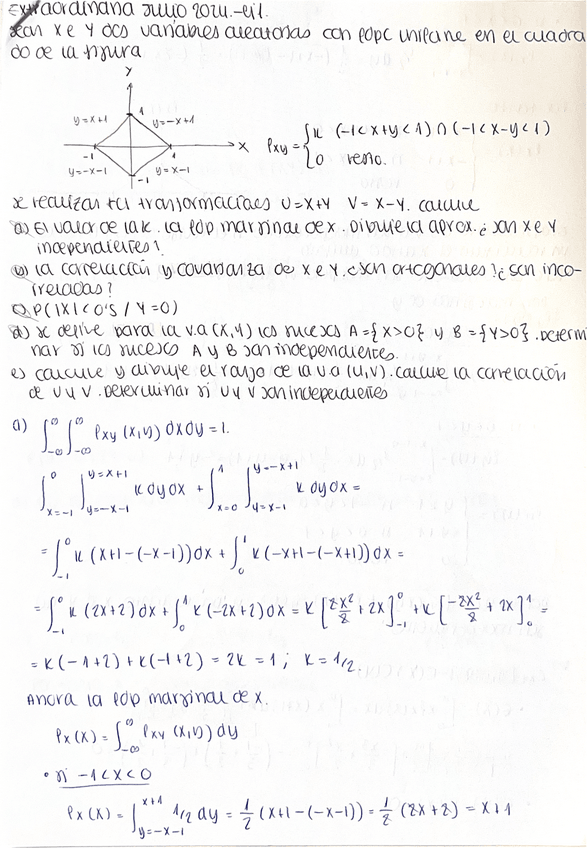 Extraordinaria Julio 2021.-ej1.
sean X e Y dos variables aleatorias con fdpc uniforme en el cuadra
do de la figura
Y
y=x+1
1
y=-x+1
-1
1
X
y=-x-1
-1
y=x-1
fxy = { k (-1<x+y<1) ∩ (-1<x-y<1)
0 resto.
se realizan las transformaciones U=X+Y V=X-Y. calcule
a) El valor de la k. la fdp marginal de x. Dibuje la aprox. ¿son X e Y
independientes?
b) la correlación y covarianza de X e Y. ¿son ortogonales? ¿son inco-
rreladas?
c) P(|X|<0's / Y=0)
d) se define para la v.a (X,Y) los sucesos A={X>0} y B={Y>0}. Determi
nar si los sucesos A y B son independientes.
e) calcule y dibuje el rango de la v.a (U,V). calcule la correlación
de U y V. Determinar si U y V son independientes
a) ∫_{-∞}^{∞} ∫_{-∞}^{∞} fxy (x,y) dxdy = 1.
∫_{x=-1}^{0} ∫_{y=-x-1}^{y=x+1} k dy dx + ∫_{x=0}^{1} ∫_{y=x-1}^{y=-x+1} k dy dx =
= ∫_{-1}^{0} k (x+1-(-x-1)) dx + ∫_{0}^{1} k (-x+1-(-x+1)) dx =
= ∫_{-1}^{0} k (2x+2) dx + ∫_{0}^{1} k (-2x+2) dx = k [2x²/2 + 2x]_{-1}^{0} + k [-2x²/2 + 2x]_{0}^{1} =
= k (-1+2) + k (-1+2) = 2k = 1 ; k = 1/2.
Ahora la fdp marginal de x.
fx (x) = ∫_{-∞}^{∞} fxy (x,y) dy
• si -1<x<0
fx (x) = ∫_{y=-x-1}^{x+1} 1/2 dy = 1/2 (x+1-(-x-1)) = 1/2 (2x+2) = x+1